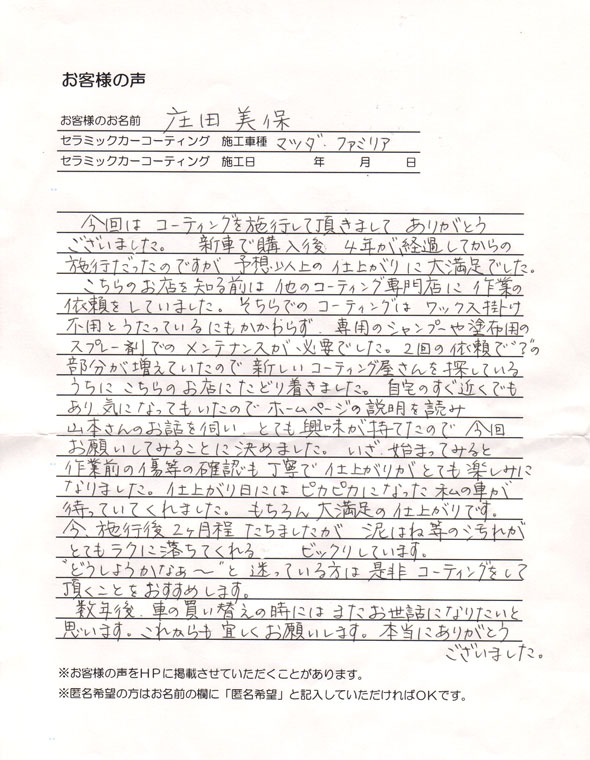 お客様の声
お客様のお名前 庄田 美保
セラミックカーコーティング 施工車種 マツダ・ファミリア
セラミックカーコーティング 施工日 年 月 日
今回は コーティングを施行して頂きまして ありがとう
ございました。 新車で購入後 4年が経過してからの
施行だったのですが 予想以上の仕上がりに大満足でした。
こちらのお店を知る前は 他のコーティング専門店に作業の
依頼をしていました。そちらでのコーティングは ワックス掛け
不用とうたっているにもかかわらず、専用のシャンプーや塗布用の
スプレー剤でのメンテナンスが必要でした。2回の依頼で"?"の
部分が増えていたので新しいコーティング屋さんを探している
うちにこちらのお店にたどり着きました。自宅のすぐ近くでも
あり気になってもいたのでホームページの説明を読み
山本さんのお話を伺い、とても興味が持てたので 今回
お願いしてみることに決めました。いざ、始まってみると
作業前の傷等の確認も丁寧で仕上がりがとても楽しみに
なりました。仕上がり日にはピカピカになった私の車が
待っていてくれました。もちろん大満足の仕上がりです。
今、施行後2ヶ月程たちましたが 泥はね等の汚れが
とてもラクに落ちてくれる ビックリしています。
"どうしようかなぁ〜"と迷っている方は是非コーティングをして
頂くことをおすすめします。
数年後、車の買い替えの時には またお世話になりたいと
思います。これからも宜しくお願いします。本当にありがとう
ございました。
※お客様の声をHPに掲載させていただくことがあります。
※匿名希望の方はお名前の欄に「匿名希望」と記入していただければOKです。